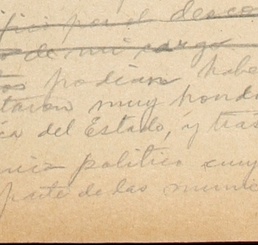 por el deseo
de mi cargo
podían habe
muy hond
ca del Estado, y tras
político cuy
parte de las munic